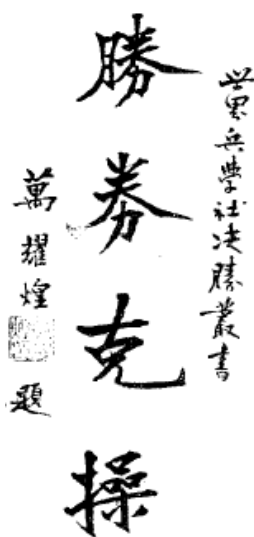 世界兵學社決勝叢書
勝券克操
萬耀煌題